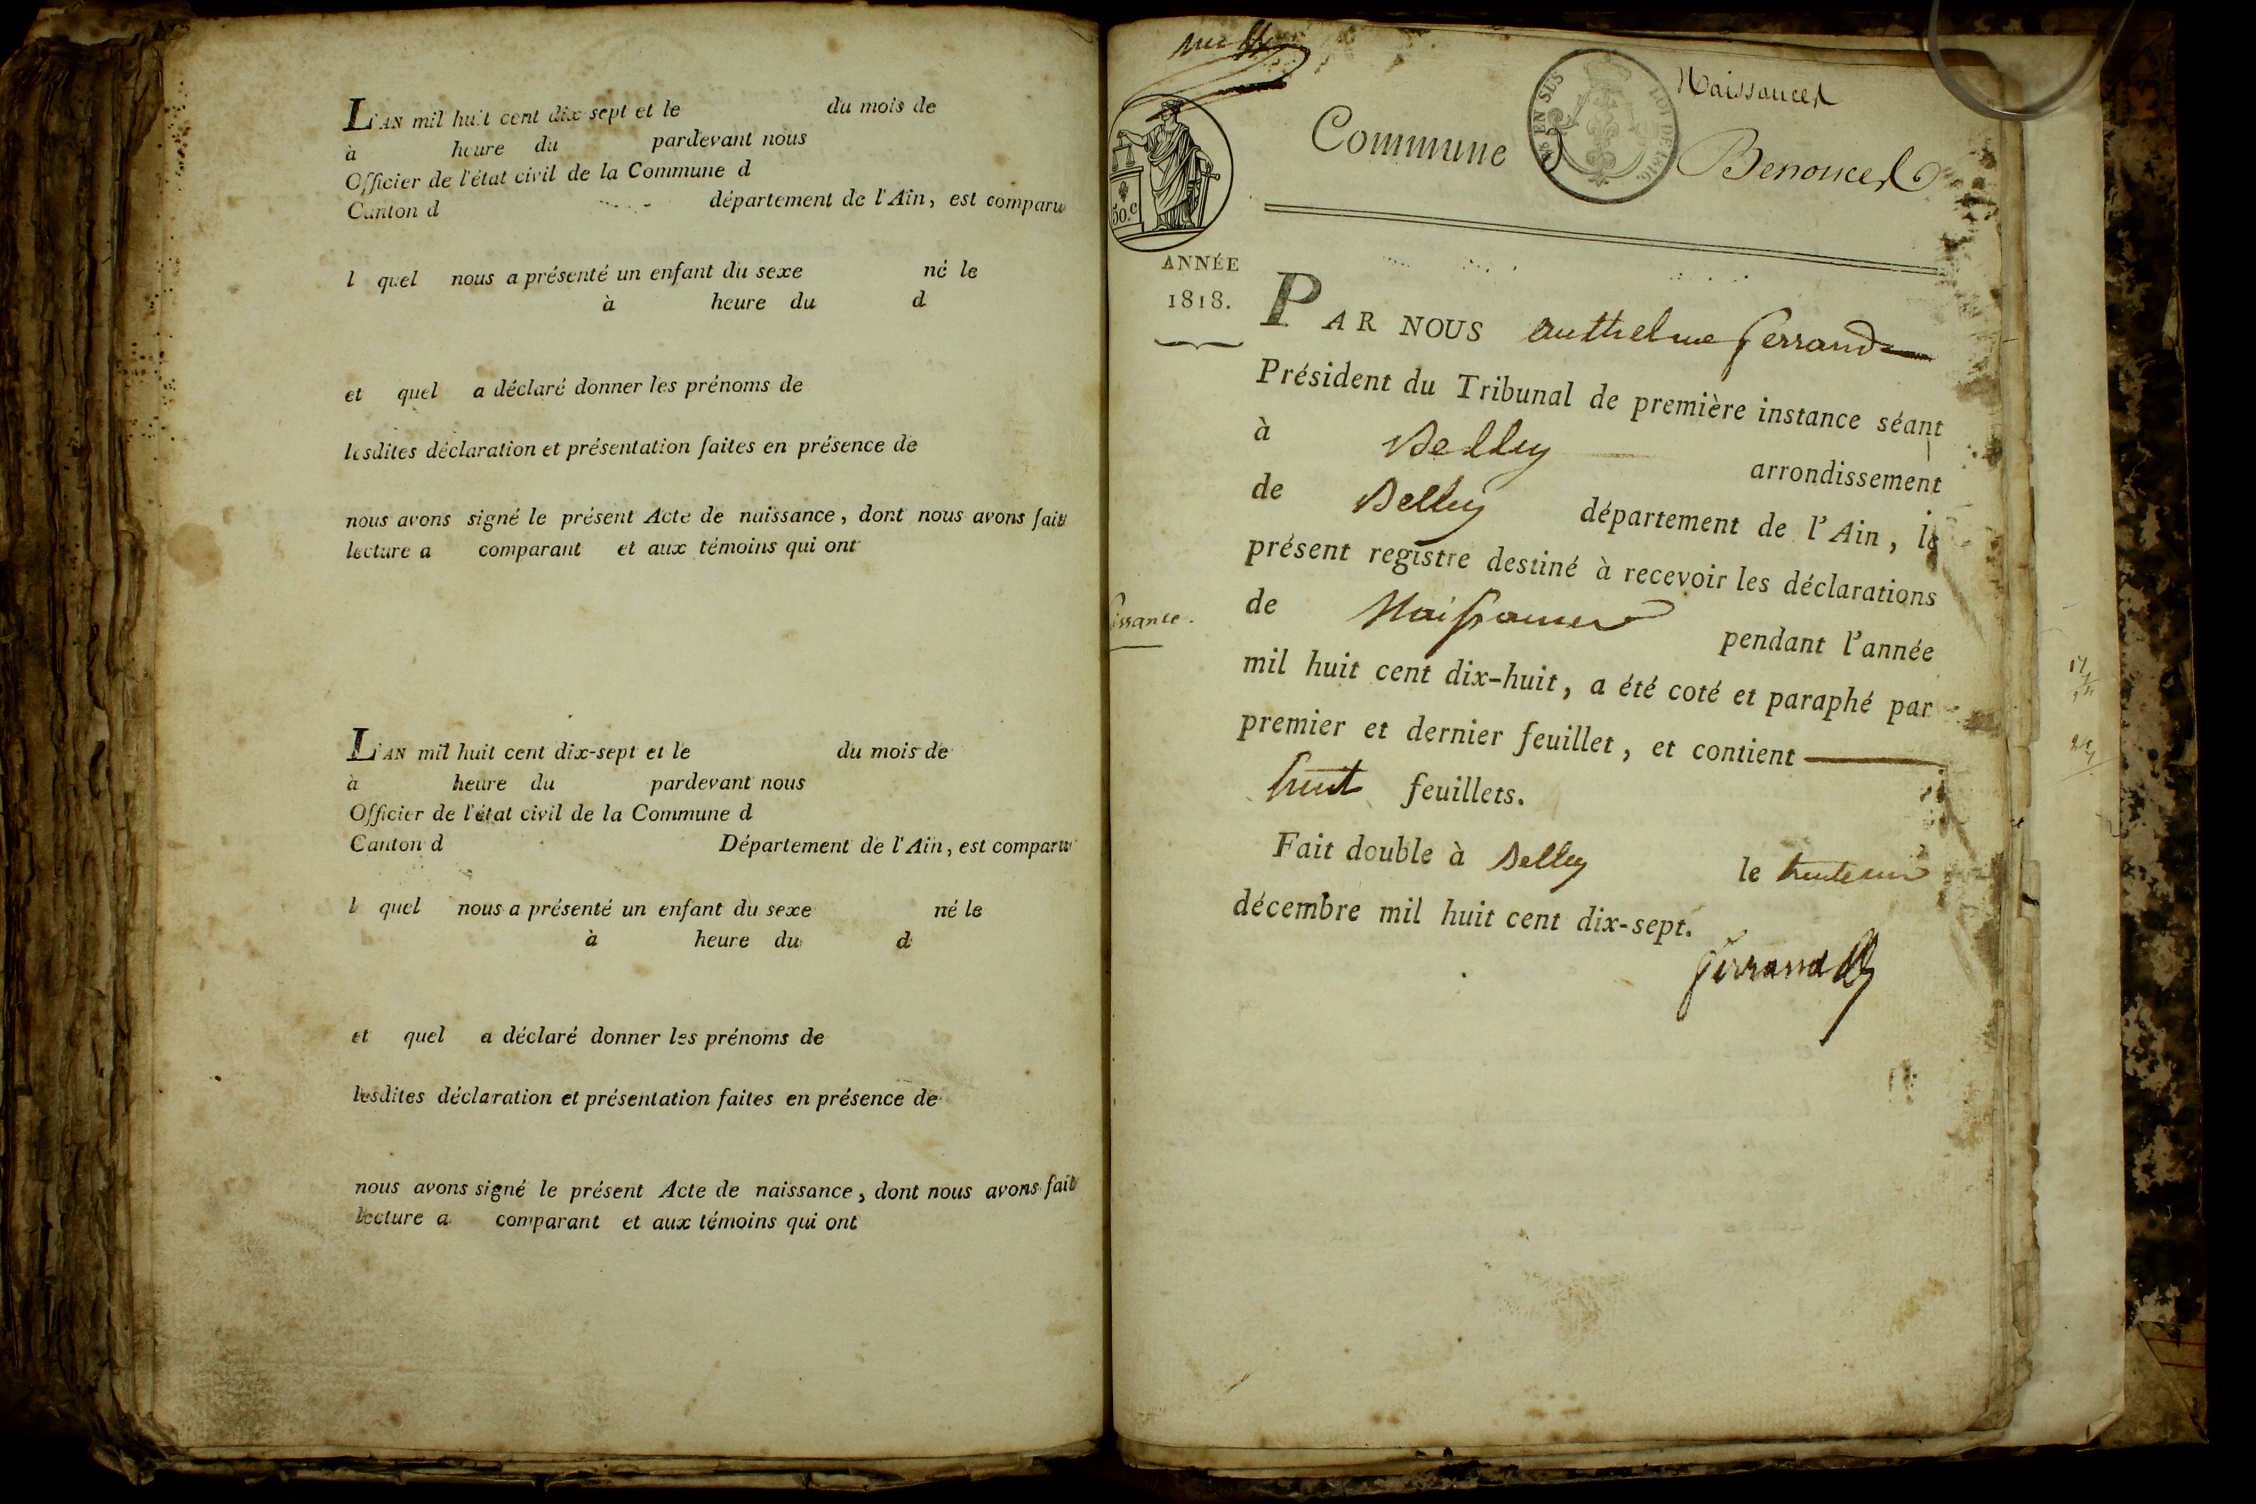 L'AN mil huit cent dix sept et le du mois de
à heure du pardevant nous
Officier de l'état civil de la Commune d
Canton d département de l'Ain, est comparu
l quel nous a présenté un enfant du sexe né le
à heure du d
et quel a déclaré donner les prénoms de
lesdites déclaration et présentation faites en présence de
nous avons signé le présent Acte de naissance, dont nous avons fait
lecture a comparant et aux témoins qui ont
L'AN mil huit cent dix-sept et le du mois de
à heure du pardevant nous
Officier de l'état civil de la Commune d
Canton d Département de l'Ain, est comparu
l quel nous a présenté un enfant du sexe né le
à heure du d
et quel a déclaré donner les prénoms de
lesdites déclaration et présentation faites en présence de
nous avons signé le présent Acte de naissance, dont nous avons fait
lecture a comparant et aux témoins qui ont
Naissances
Commune Benonces
EN SUS
LOI DE 1816
50.c
ANNÉE
1818.
PAR NOUS Anthelme Ferrand
Président du Tribunal de première instance séant
à Belley arrondissement
de Belley département de l'Ain, le
présent registre destiné à recevoir les déclarations
de Naissances pendant l'année
mil huit cent dix-huit, a été coté et paraphé par
premier et dernier feuillet, et contient
huit feuillets.
Fait double à Belley le trente un
décembre mil huit cent dix-sept.
Ferrand
issance.